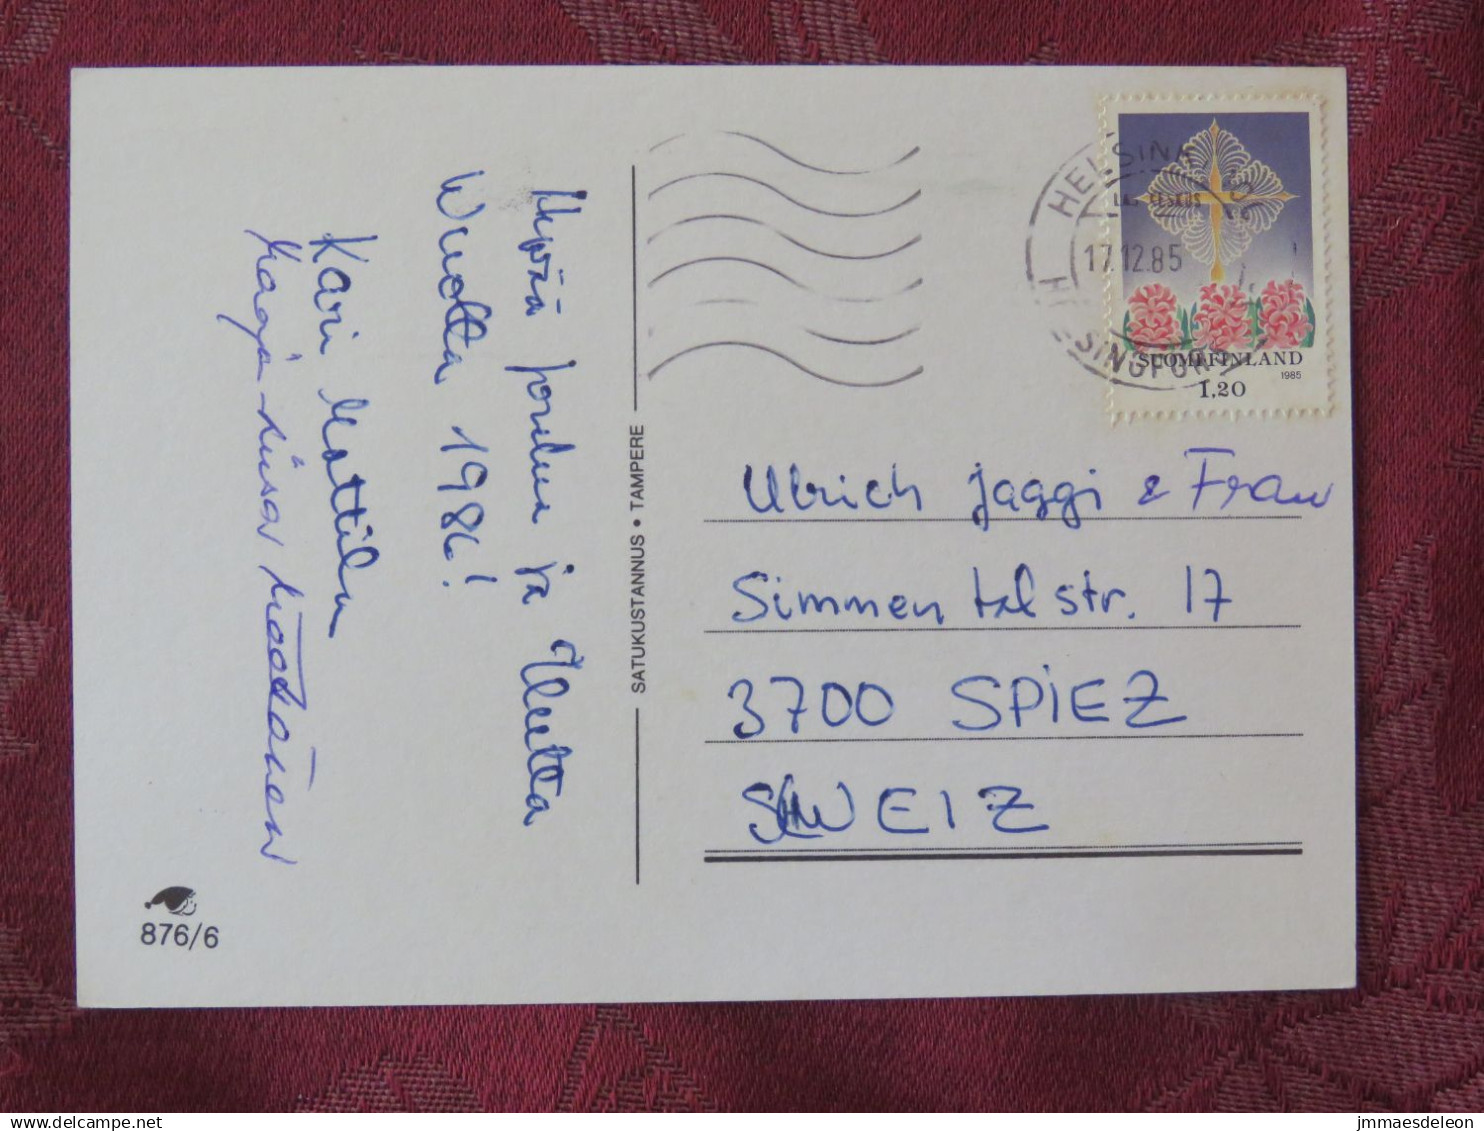 Hyvää joulua ja Uutta
Vuotta 1986!
Kari Mattila
Kaija-Liisa
876/6
SATUKUSTANNUS • TAMPERE
HELSINKI
LAJ. KESKUS
17.12.85
HELSINGFORS
SUOMI FINLAND
1985
1,20
Ulrich Jaggi & Frau
Simmentalstr. 17
3700 SPIEZ
SCHWEIZ
https://www.delcampe.net
jmmaesdeleon